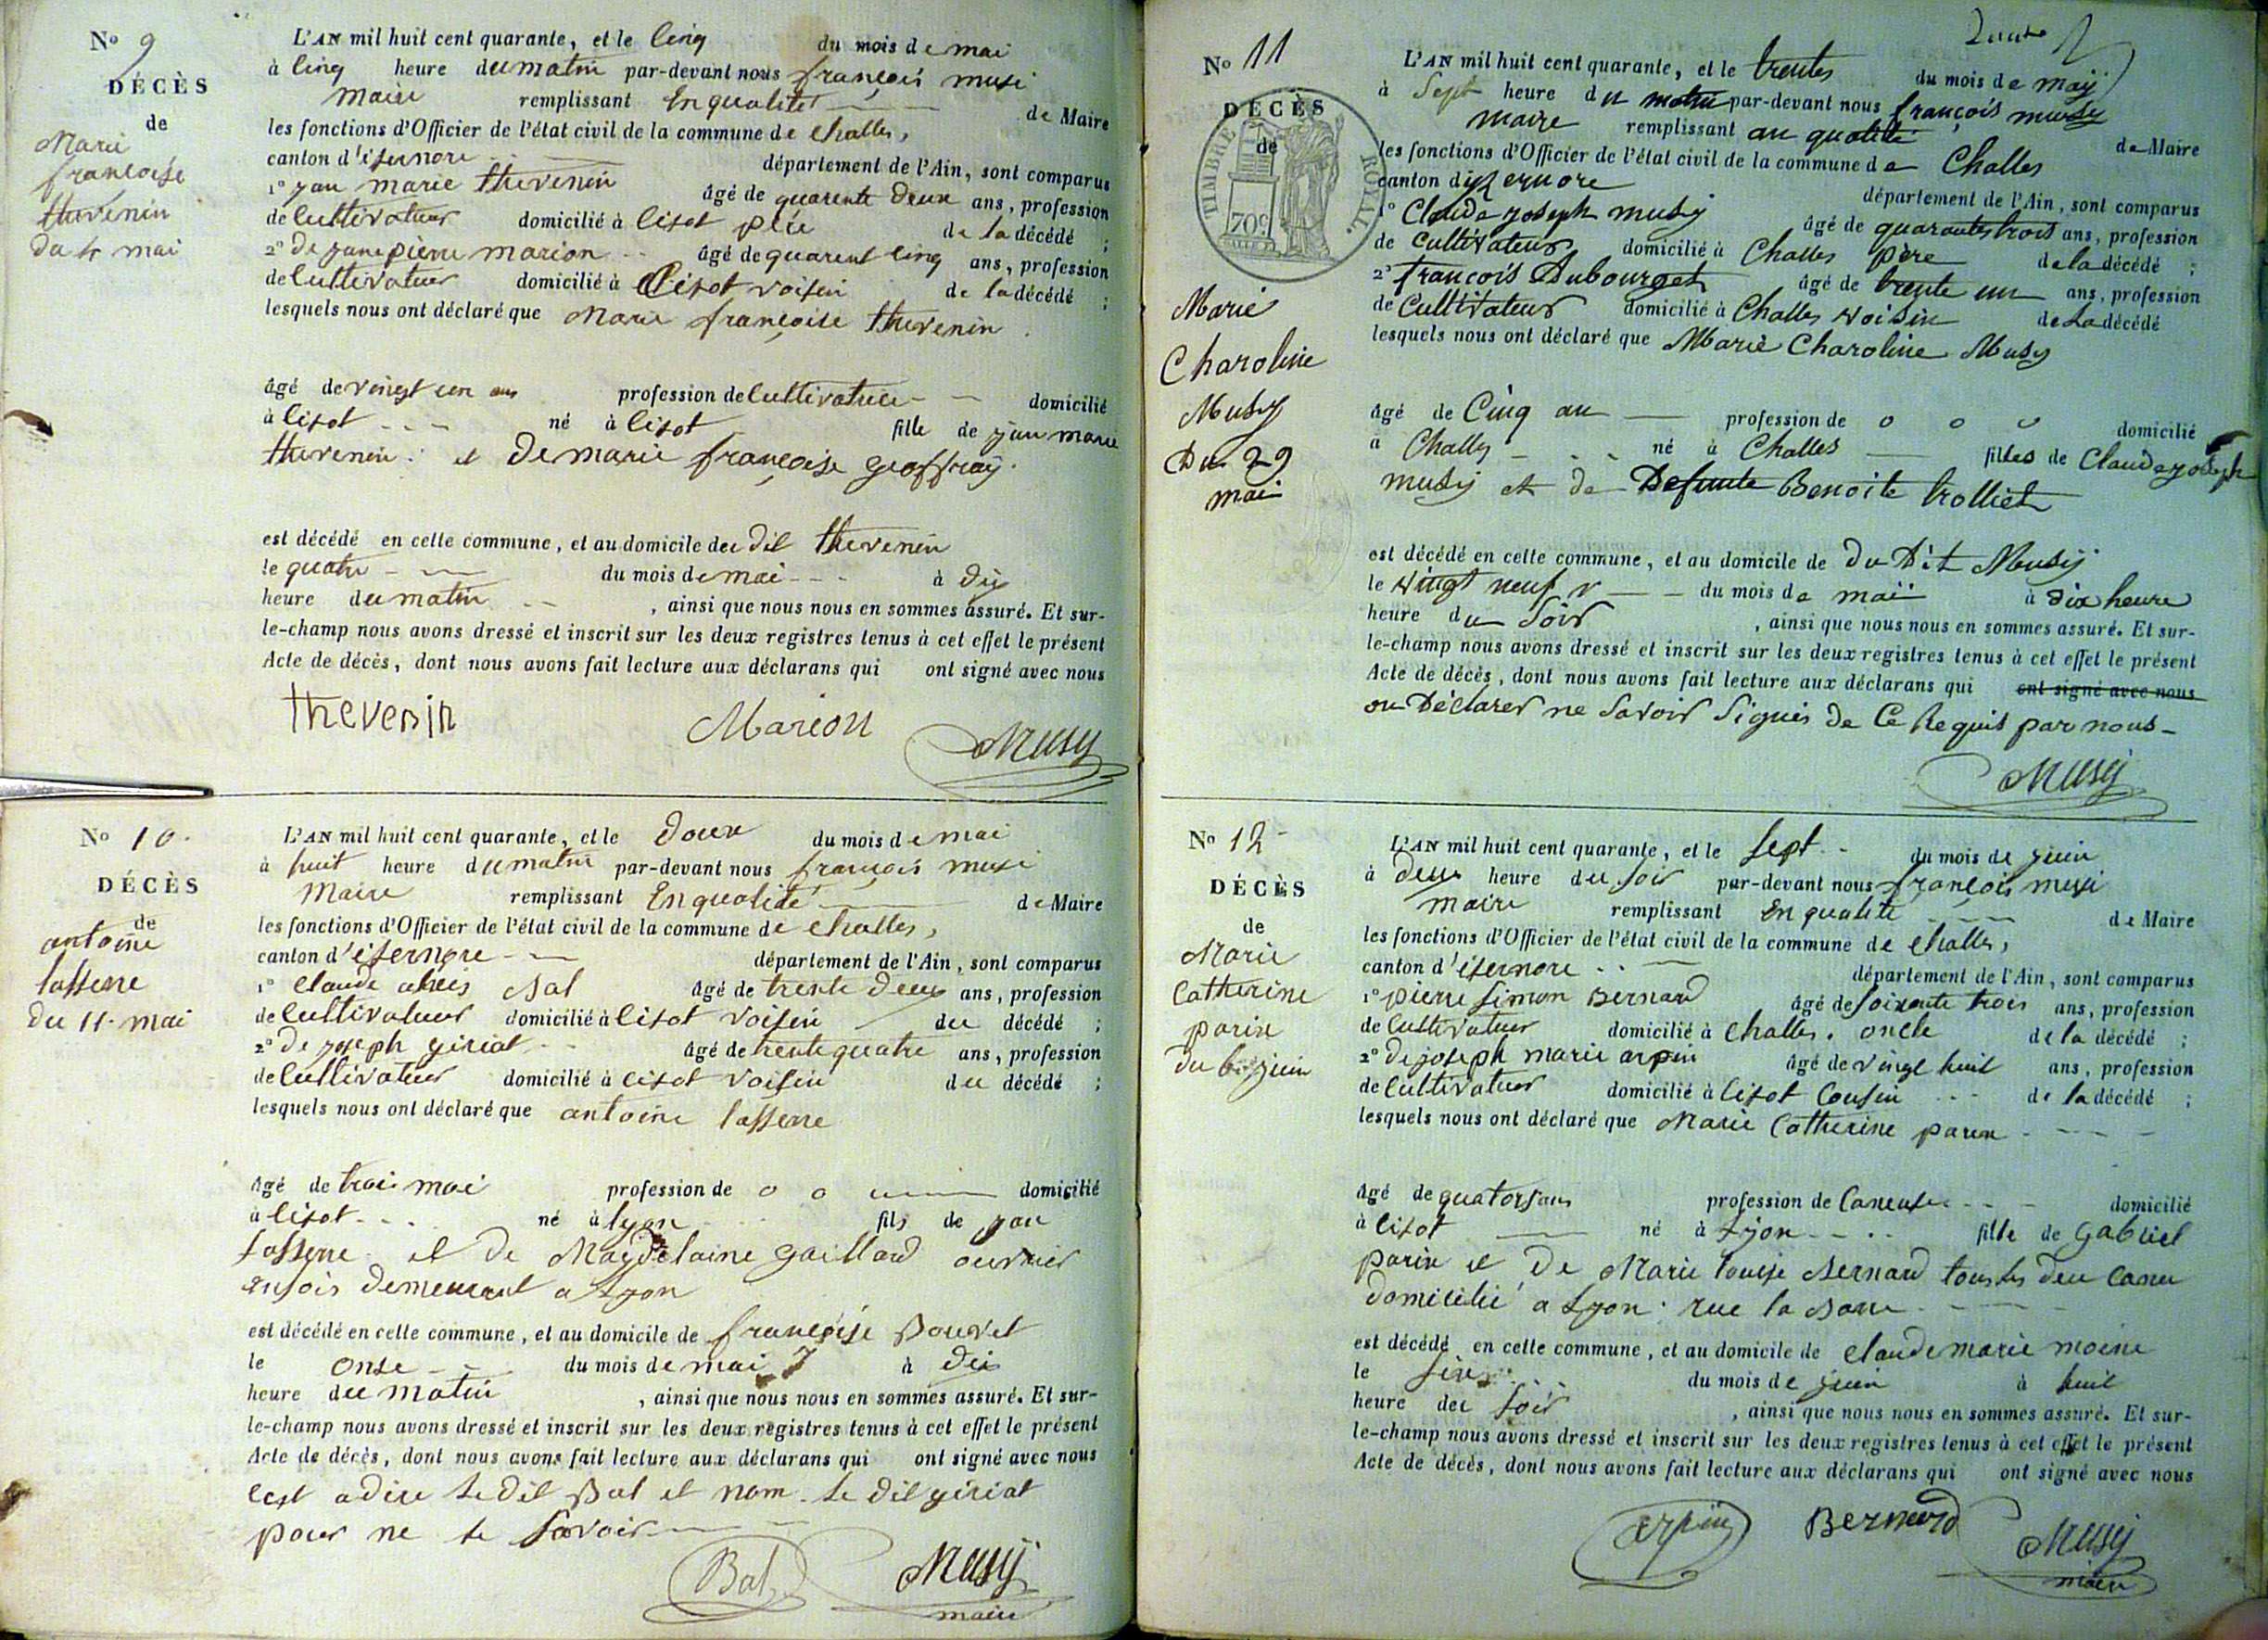 No 9
DÉCÈS
de
Marie
françoise
thevenin
du 4 mai
L'AN mil huit cent quarante, et le cinq du mois de mai
à cinq heure du matin par-devant nous françois musi
maire remplissant En qualité de Maire
les fonctions d'Officier de l'état civil de la commune de challes,
canton d'isernore département de l'Ain, sont comparus
1o jan marie thevenin âgé de quarente deux ans, profession
de cultivateur domicilié à lisot père de la décédé ;
2o de jane pierre marion âgé de quarent cinq ans, profession
de cultivateur domicilié à lisot voisin de la décédé ;
lesquels nous ont déclaré que Marie françoise thevenin
âgé de vingt un ans profession de cultivatrice domicilié
à lisot né à lisot fille de jan marie
thevenin et De marie françoise geoffray.
est décédé en cette commune, et au domicile du dit thevenin
le quatre du mois de mai à dix
heure du matin, ainsi que nous nous en sommes assuré. Et sur-
le-champ nous avons dressé et inscrit sur les deux registres tenus à cet effet le présent
Acte de décès, dont nous avons fait lecture aux déclarans qui ont signé avec nous
thevenin Marion Musy
No 10
DÉCÈS
de
antoine
lasserre
du 11 mai
L'AN mil huit cent quarante, et le douze du mois de mai
à huit heure du matin par-devant nous françois musi
Maire remplissant En qualité de Maire
les fonctions d'Officier de l'état civil de la commune de challes,
canton d'isernore département de l'Ain, sont comparus
1o claude Bal âgé de trente deux ans, profession
de cultivateur domicilié à lisot voisin du décédé ;
2o De joseph giriat âgé de trente quatre ans, profession
de cultivateur domicilié à lisot voisin du décédé ;
lesquels nous ont déclaré que antoine lasserre
âgé de trois moi profession de o o domicilié
à lisot né à lyon fils de jan
lasserre et De Magdelaine gaillard ouvrier
en sois demeurant a Lyon
est décédé en cette commune, et au domicile de françoise Bouvet
le onse du mois de mai à dix
heure du matin, ainsi que nous nous en sommes assuré. Et sur-
le-champ nous avons dressé et inscrit sur les deux registres tenus à cet effet le présent
Acte de décès, dont nous avons fait lecture aux déclarans qui ont signé avec nous
cest adire le dit Bal et nom le dit giriat
pour ne le savoir
Bal Musy
maire
No 11
DÉCÈS
de
TIMBRE ROYAL.
70c
Marie
Charoline
Musy
Du 29
mai
L'AN mil huit cent quarante, et le trentes du mois de maÿ
à Sept heure du matin par-devant nous françois musy
maire remplissant au qualité de Maire
les fonctions d'Officier de l'état civil de la commune de Challes
canton dizernore département de l'Ain, sont comparus
1o Claude joseph musy âgé de quarantes trois ans, profession
de cultivateur domicilié à Challes père de la décédé ;
2o françois Dubourget âgé de trente un ans, profession
de Cultivateur domicilié à Challes voisin de La décédé
lesquels nous ont déclaré que Marie Charoline Musy
âgé de Cinq an profession de o o o domicilié
à Challes né à Challes filles de Claude joseph
musy et de Defunte Benoite trolliet
est décédé en cette commune, et au domicile de du Dit Musy
le vingt neuf du mois de mai à dix heure
heure du Soir, ainsi que nous nous en sommes assuré. Et sur-
le-champ nous avons dressé et inscrit sur les deux registres tenus à cet effet le présent
Acte de décès, dont nous avons fait lecture aux déclarans qui ont signé avec nous
on Déclarer ne Savoir Signer de Ce Requis par nous
Musy
No 12
DÉCÈS
de
Marie
Catherine
parix
du 6 juin
L'AN mil huit cent quarante, et le sept du mois de juin
à deux heure du soir par-devant nous françois musi
maire remplissant En qualité de Maire
les fonctions d'Officier de l'état civil de la commune de challes,
canton d'isernore département de l'Ain, sont comparus
1o pierre simon Bernard âgé de soixante trois ans, profession
de cultivateur domicilié à challes. oncle de la décédé ;
2o De joseph marie arpin âgé de vingt huit ans, profession
de cultivateur domicilié à lisot Cousin de la décédé ;
lesquels nous ont déclaré que Marie Catherine parix
âgé de quatorsans profession de Caneuse domicilié
à lisot né à Lyon fille de gabriel
parix et De Marie louise Bernard tous les deu Canu
domicilié a Lyon rue la
est décédé en cette commune, et au domicile de claude marie moine
le six du mois de juin à huit
heure du soir, ainsi que nous nous en sommes assuré. Et sur-
le-champ nous avons dressé et inscrit sur les deux registres tenus à cet effet le présent
Acte de décès, dont nous avons fait lecture aux déclarans qui ont signé avec nous
arpin Bernard Musy
maire